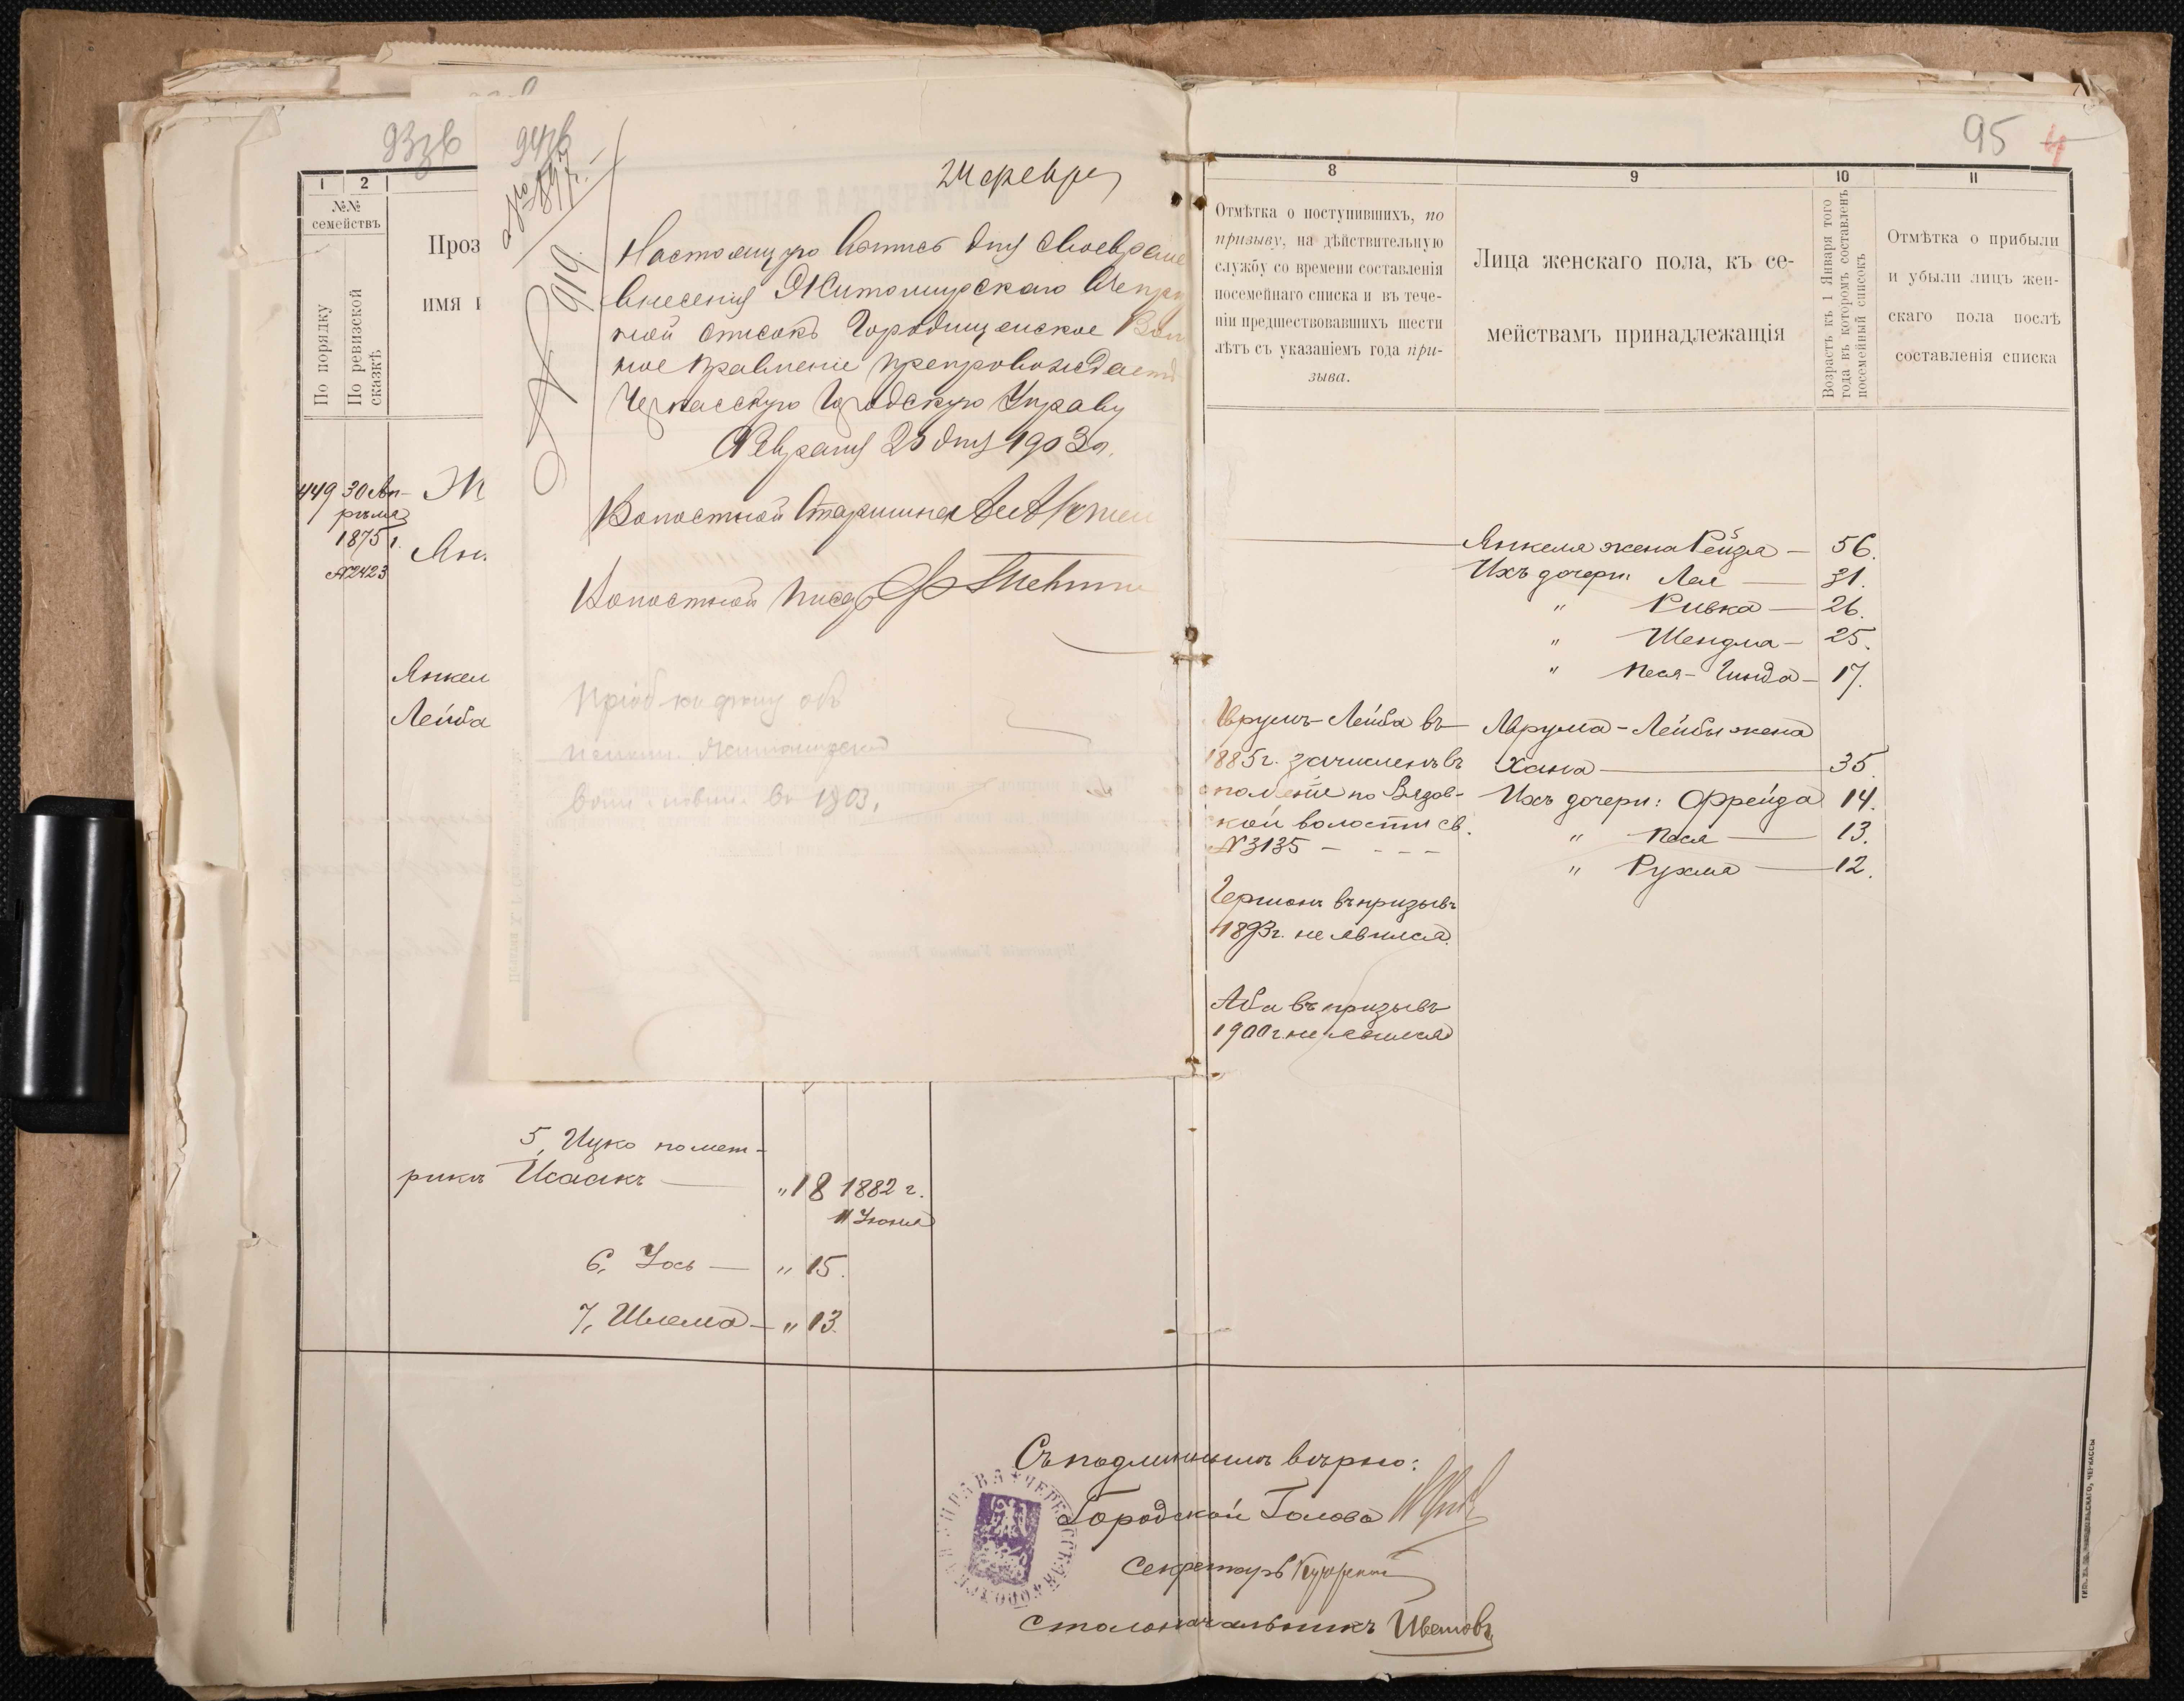 93зв
1
2
№№
семействъ
По порядку
По ревизской
сказкѣ
Проз
имя и
449
30 Ап-
рѣля
1875 г.
№2423
Янкел
Лейба
94зв
№ 919
24 февр
Настоящую
внесенія Житомирскаго
ной списокъ Городищенское Вол
ное Правленіе препровождаетъ
Черкасскую Городскую Управу
Февраля 25 дня 1903 г.
Волостной Старшина
Волостной Писарь
Пріоб къ
въ 1903.
5, Ицко по мет-
рикѣ Исаакъ
" 18 1882 г.
11 Іюня
6, Іось — " 15.
7, Шлема — " 13.
95
4
8
Отмѣтка о поступившихъ, по
призыву, на дѣйствительную
службу со времени составленія
посемейнаго списка и въ тече-
ніи предшествовавшихъ шести
лѣтъ съ указаніемъ года при-
зыва.
9
Лица женскаго пола, къ се-
мействамъ принадлежащія
10
Возрастъ къ 1 Января того
года въ которомъ составленъ
посемейный списокъ
11
Отмѣтка о прибыли
и убыли лицъ жен-
скаго пола послѣ
составленія списка
Янкеля жена Рейзя — 56.
Ихъ дочери: Лея — 31.
" Ривка — 26.
" Шендля — 25.
" Песя-Гинда — 17.
Аврумъ-Лейба въ
1885 г. зачисленъ въ
ополченіе по Вязов-
кой волости св.
№ 3135 - - - -
Аврума-Лейбы жена
Хана — 35.
Ихъ дочери: Фрейда 14.
" Песя — 13.
" Рухля — 12.
Гершонъ въ призывъ
1893 г. не явился.
Аба въ призывъ
1900 г. не явился
Съ подлиннымъ вѣрно:
Городской Голова
Секретарь
Столоначальникъ